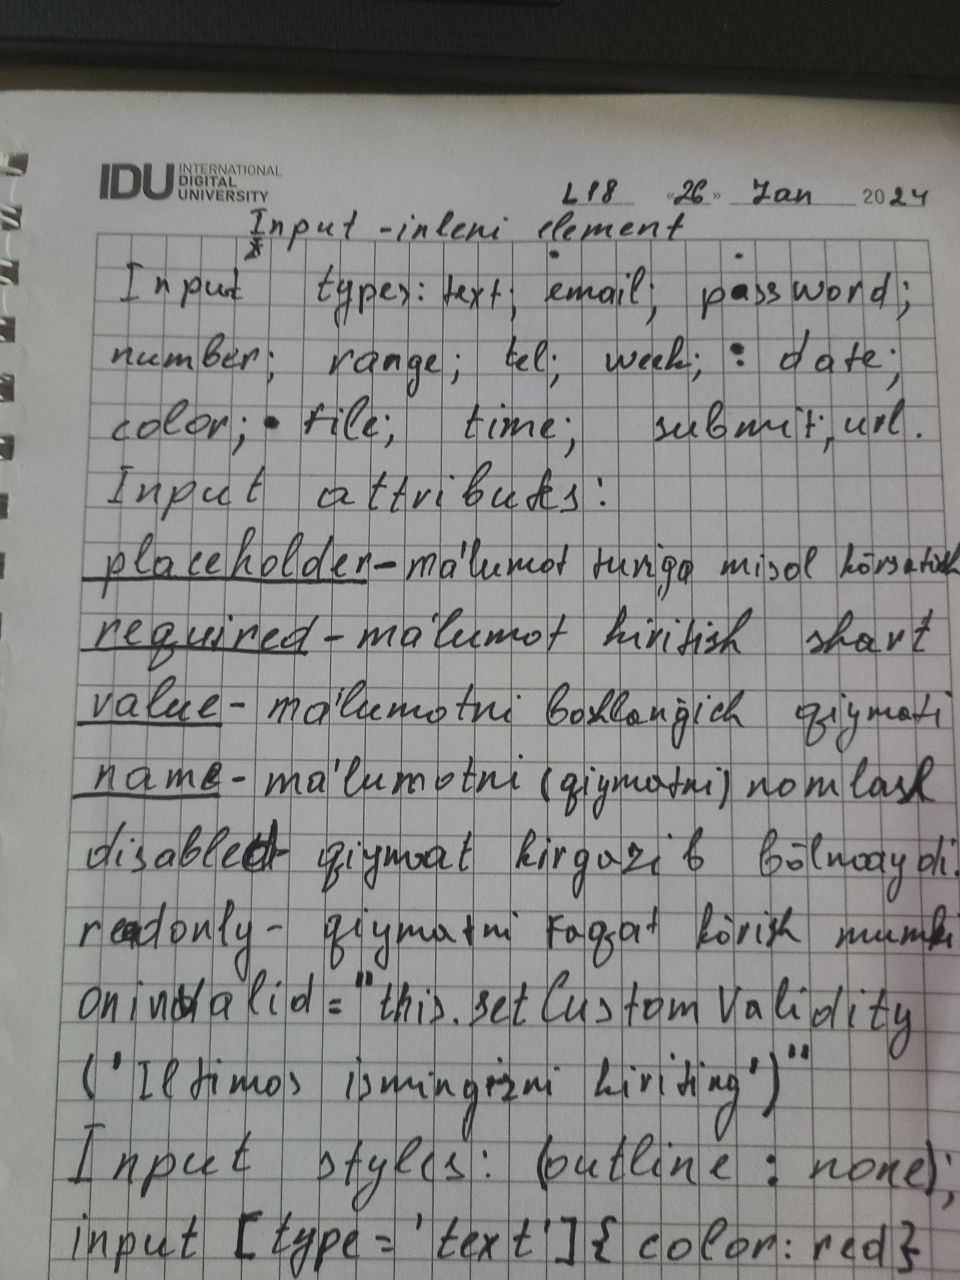 IDU INTERNATIONAL
DIGITAL
UNIVERSITY
L18 «26» Jan 2024
Input -inleni element
Input types: text; email; password;
number; range; tel; week; date;
color; file; time; submit; url.
Input attributes:
placeholder - ma'lumot turiga misol körsatish
required - ma'lumot kiritish shart
value - ma'lumotni boshlang'ich qiymati
name - ma'lumotni (qiymatni) nomlash
disabled qiymat kirgazib bölmaydi.
readonly - qiymatni faqat körish mumki
oninvalid="this.setCustomValidity
('Iltimos ismingizni kiriting')"
Input styles: (outline: none);
input [type='text']{ color: red}